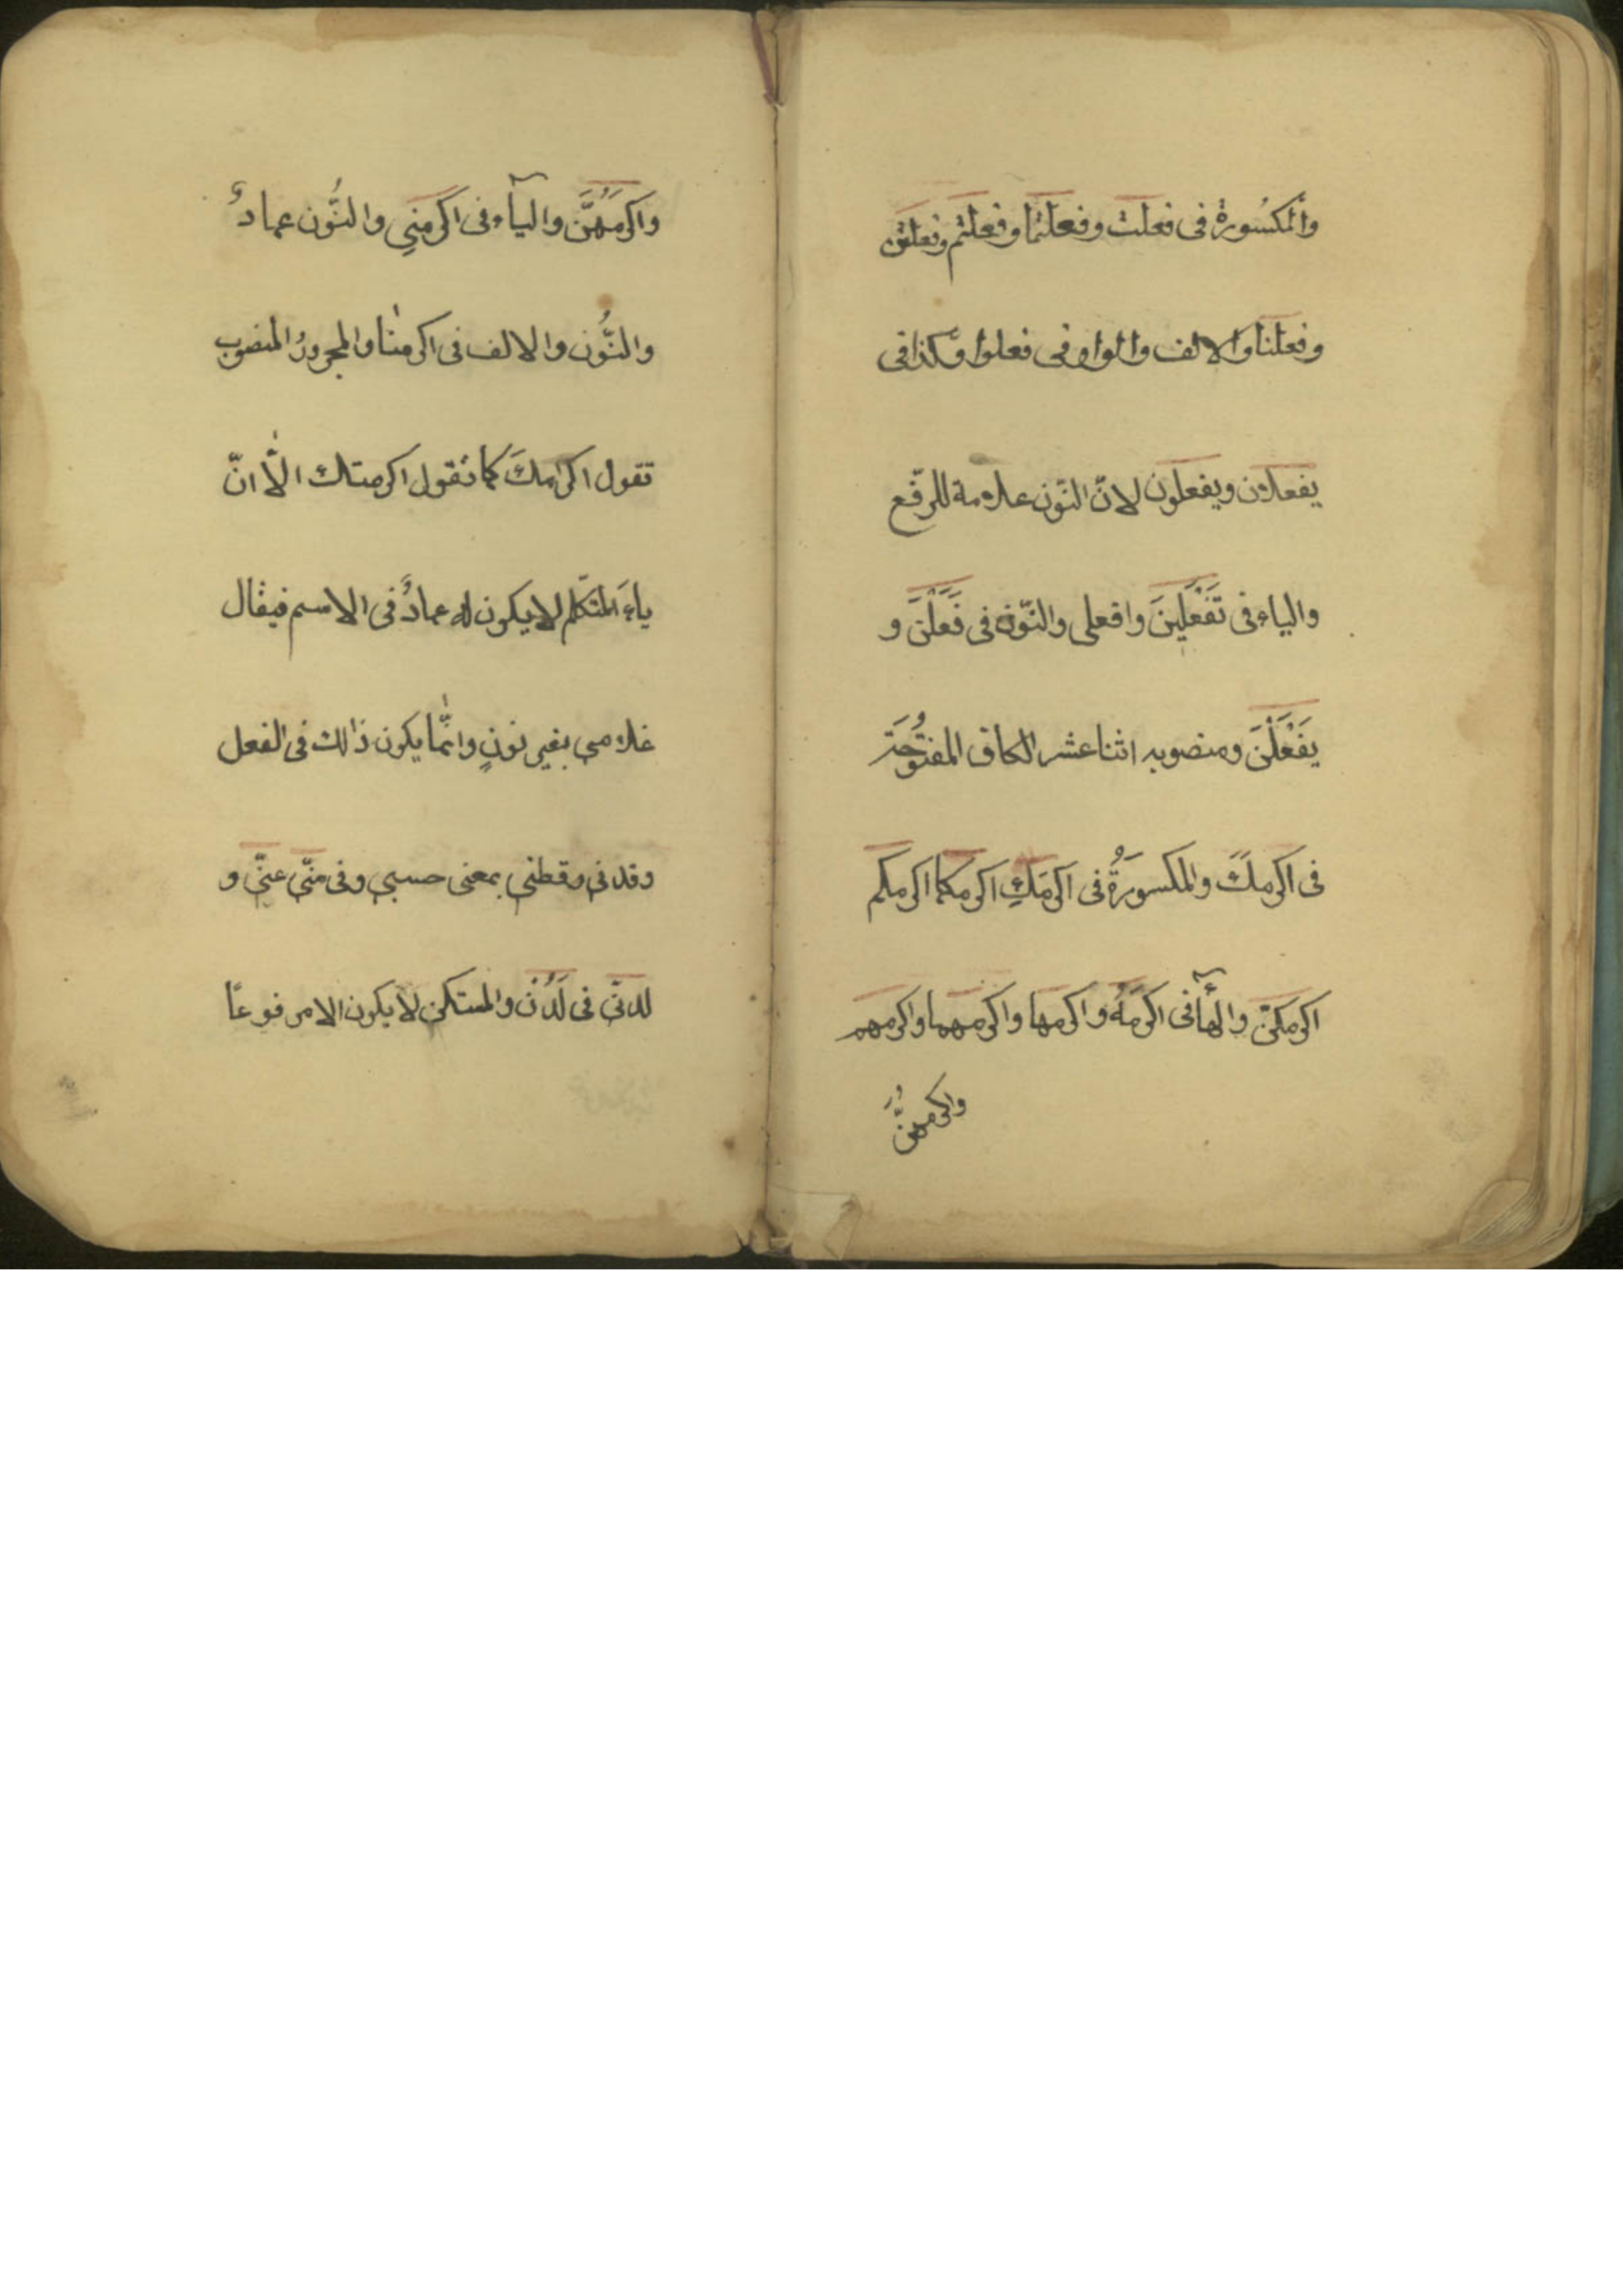 والمكسُورةُ فى فعلت وفعلتما وفعلتم وفعلتن
وفعلنا والالف والواو فى فعلوا وكذا فى
يفعلان ويفعلون لانّ النّون علامة للرّفع
والياء فى تَفْعَلِينَ وافعلى والنّون فى فَعَلْنَ و
يَفْعَلْنَ ومنصوبه اثنا عشر الكاف المفتُوحَة
فى اكرمكَ والمكسورَةُ فى اكرمَكِ اكرمكما اكرمكم
اكرمكنّ والهآء فى اكرمَهُ واكرمها واكرمهما واكرمهم
واكرمهُنَّ
واكرمَهُنَّ واليآء فى اكرمَنِي والنُّون عمادٌ
والنُّون والالف فى اكرمنا والمجرورُ المنصوب
تقول اكرامكَ كما تقول اكرمتك الّا انّ
ياءَ المتكلّم لا يكون له عمادٌ فى الاسم فيقال
غلامى بغير نونٍ وانّما يكون ذالك فى الفعل
وقدنى وقطنى بمعنى حسبى وفى منّى عنّى و
لدنّى فى لَدُنْ والمستكن لا يكون الا مرفوعًا